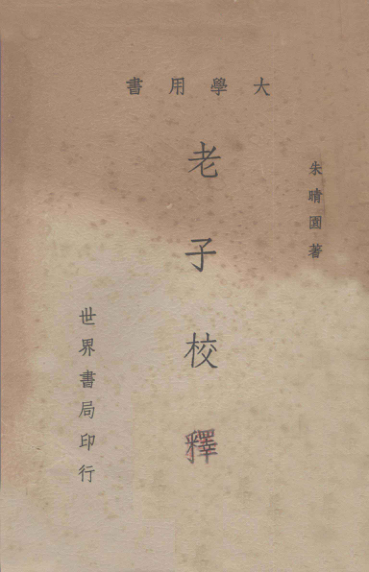 大學用書
朱晴園著
老子校釋
世界書局印行